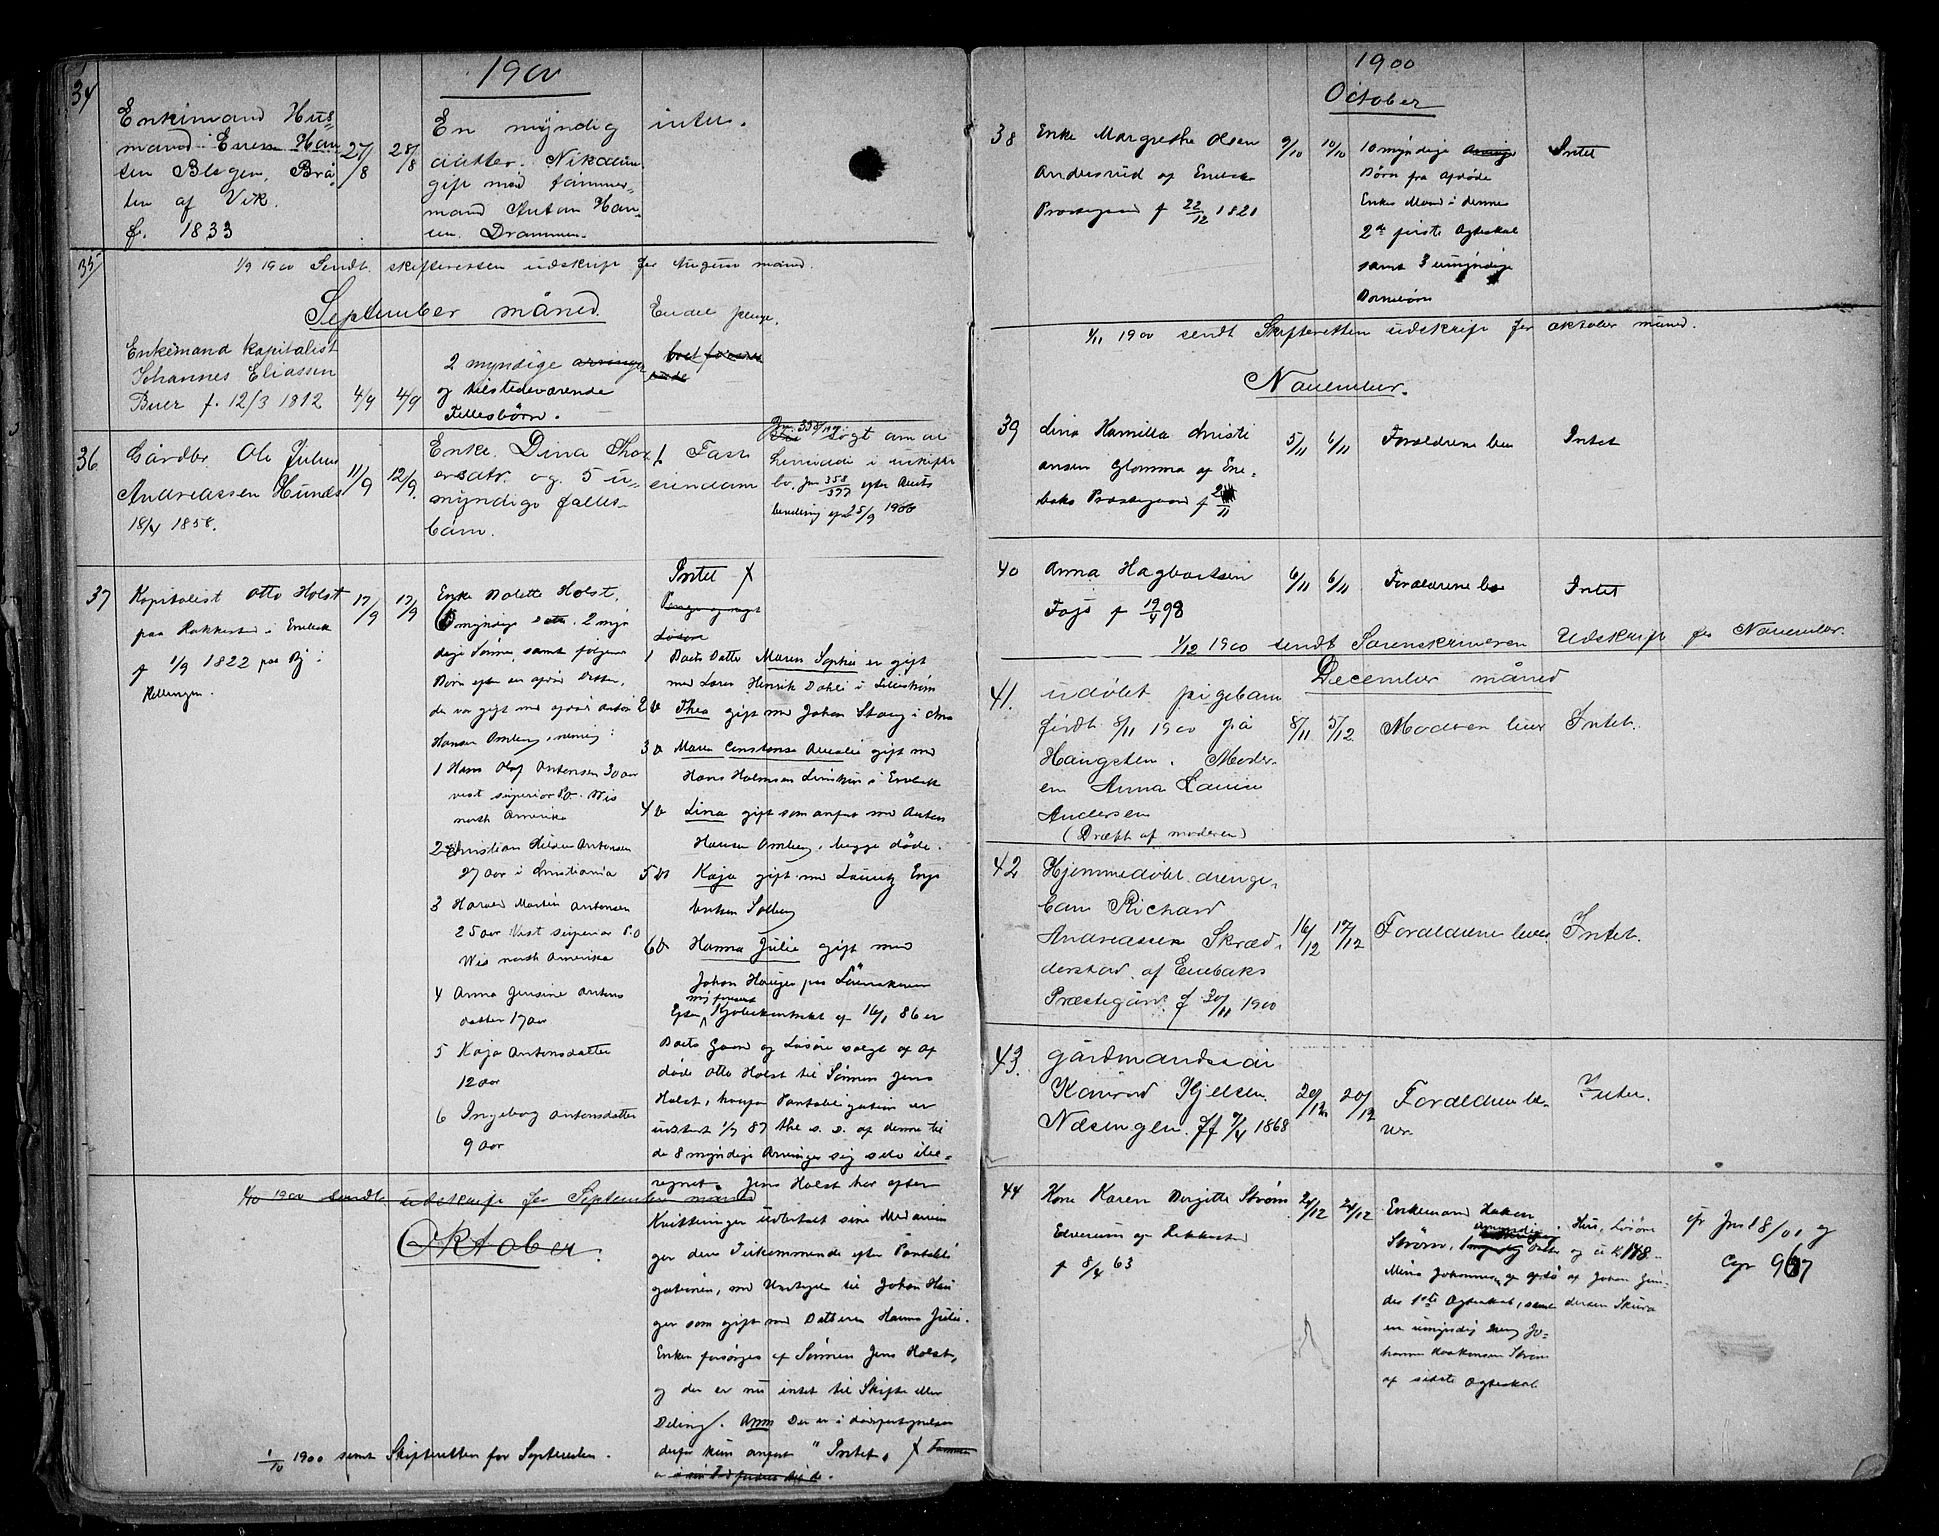 1900
34
Enkemand Hus-
mand Even Han
sen Blegen, Brå-
ten af Vik.
f. 1833
27/8
28/8
En myndig
datter. Nikoline
gift med tømmer-
mand Anton Han-
sen. Drammen.
intet.
35
1/9 1900 Sendt skifteretten udskrift for August måned.
September måned.
Enkemand kapitalist
Johannes Eliassen
Buer f. 12/3 1812
4/9
4/9
2 myndige arvinger
og tilstedeværende
Fellesbørn.
Endel penge.
36.
Gårdbr. Ole Julius
Andreassen Hunds
18/4 1858.
11/9
12/9.
Enke. Dina Thor
ersdtr. og 5 u-
myndige fælles-
børn.
1 Fast
eiendom
søgt om at
hensidde i uskiftet
bo. Jnr 358/377 efter Amts
bevilling af 25/9 1900
37
Kapitalist Otto Holst
paa Rakkestad i Enebak
f 1/9 1822 paa Bj:
Kellingen.
17/9
17/9
Enke Dolette Holst,
6 myndige Døtt. 2 myn
dige Sønner, samt følgende
Børn efter en afdød Datter,
der var gift med afdød Anton
Hansen Omberg, nemlig:
1 Hans Olaf Antonsen 30 aar
vest superior P.O. Wis
north Amerika
2 Christian Hilder Antonsen
27 aar i Christiania
3 Harald Martin Antonsen
25 aar Vest superior P.O
Wis north Amerika
4 Anna Jensine Antons
datter 17 aar
5 Kaja Antonsdatter
12 aar
6 Ingeborg Antonsdatter
9 aar
Intet X
Penge og noget
Løsøre
1 Boets Datter Maren Sophie er gift
med Lars Henrik Dahli i Lillestrøm
2 D Thea gift med Johan Stang i Chra
3 D Maren Constanse Amalie gift med
Hans Halmsen Linskin i Enebak
4 D Lina gift som anført med Anton
Hansen Omberg, begge døde.
5 D Kaja gift med Lauritz Enge
bretsen Solberg
6 D Hanna Julie gift med
Johan Hauger paa Lørenskoven
Efter Kjøbekontrakt af 16/1 86 er
Boets Gaard og Løsøre solgt af af
døde Otto Holst til Sønnen Jens
Holst, hvorfor Pantobligation er
udstedt 1/7 87 af denne til
de 8 myndige Arvinger sig selv ibe-
regnet. Jens Holst har efter
Kvitteringer udbetalt sine Medarvin
ger dere Tilkommende efter Pantobli
gationen, med Undtagelse til Johan Hau
ger som gift med Datteren Hanna Julie.
Enken forsørges af Sønnen Jens Holst,
og der er nu intet til Skifte eller
Deling. Anm Der er i
derfor kun anført "Intet" X
1/10 1900 sendt udskrift for September måned
Oktober.
1/10 1900 sendt Skifteretten for September.
1900
October
38
Enke Margrethe Olsen
Andersrud af Enebak
Prestegaard f 22/12 1821
9/10
10/10
10 myndige Arvinge
Børn fra afdøde
Enkes Mand i dennes
2de første Ægteskab
samt 3 umyndige
Børnebørn
Intet
1/11 1900 sendt Skifteretten udskrift for oktober måned.
November.
39
Lina Kamilla Kristi
ansen Glomma af Ene
baks Præstegaard f
5/11
6/11
Forældrene lever
Intet
40
Anna Hagbartsen
Tajs f 19/4 98
6/11
6/11
Forældrene lever
Intet
1/12 1900 sendt Sorenskriveren Udskrift for November.
December måned
41.
udøbt pigebarn
født 8/11 1900 på
Haugsten. Moder-
en Anna Lauise
Andersen
(Dræbt af moderen)
8/11
5/12
Moderen lever
Intet.
42
Hjemmedøbt drenge-
barn Richard
Andreassen Skræd-
derstad, af Enebaks
Præstegård f 30/11 1900
16/12
17/12
Forældrene lever
Intet.
43.
gårdmandssøn
Konrad Kjelsen
Næsengen. ff 9/4 1868
20/12
20/12
Forældrene le-
ver
Intet.
44
Kone Karen Birgitte Strøm
Edversrum af Rakkestad
f 8/4 63
24/12
24/12
Enkemand Haken
Strøm, 1 umyndig Datter
Mina Johannesen af afdø
des 1ste Ægteskab, samt
en umyndig Dreng Jo-
hannes Haakensen Strøm
af sidste Ægteskab
Hus, Løsøre
og ... K 148-
af Johan Gun-
dersen Skura
cfr Jnl 8/01 og
Cop 967